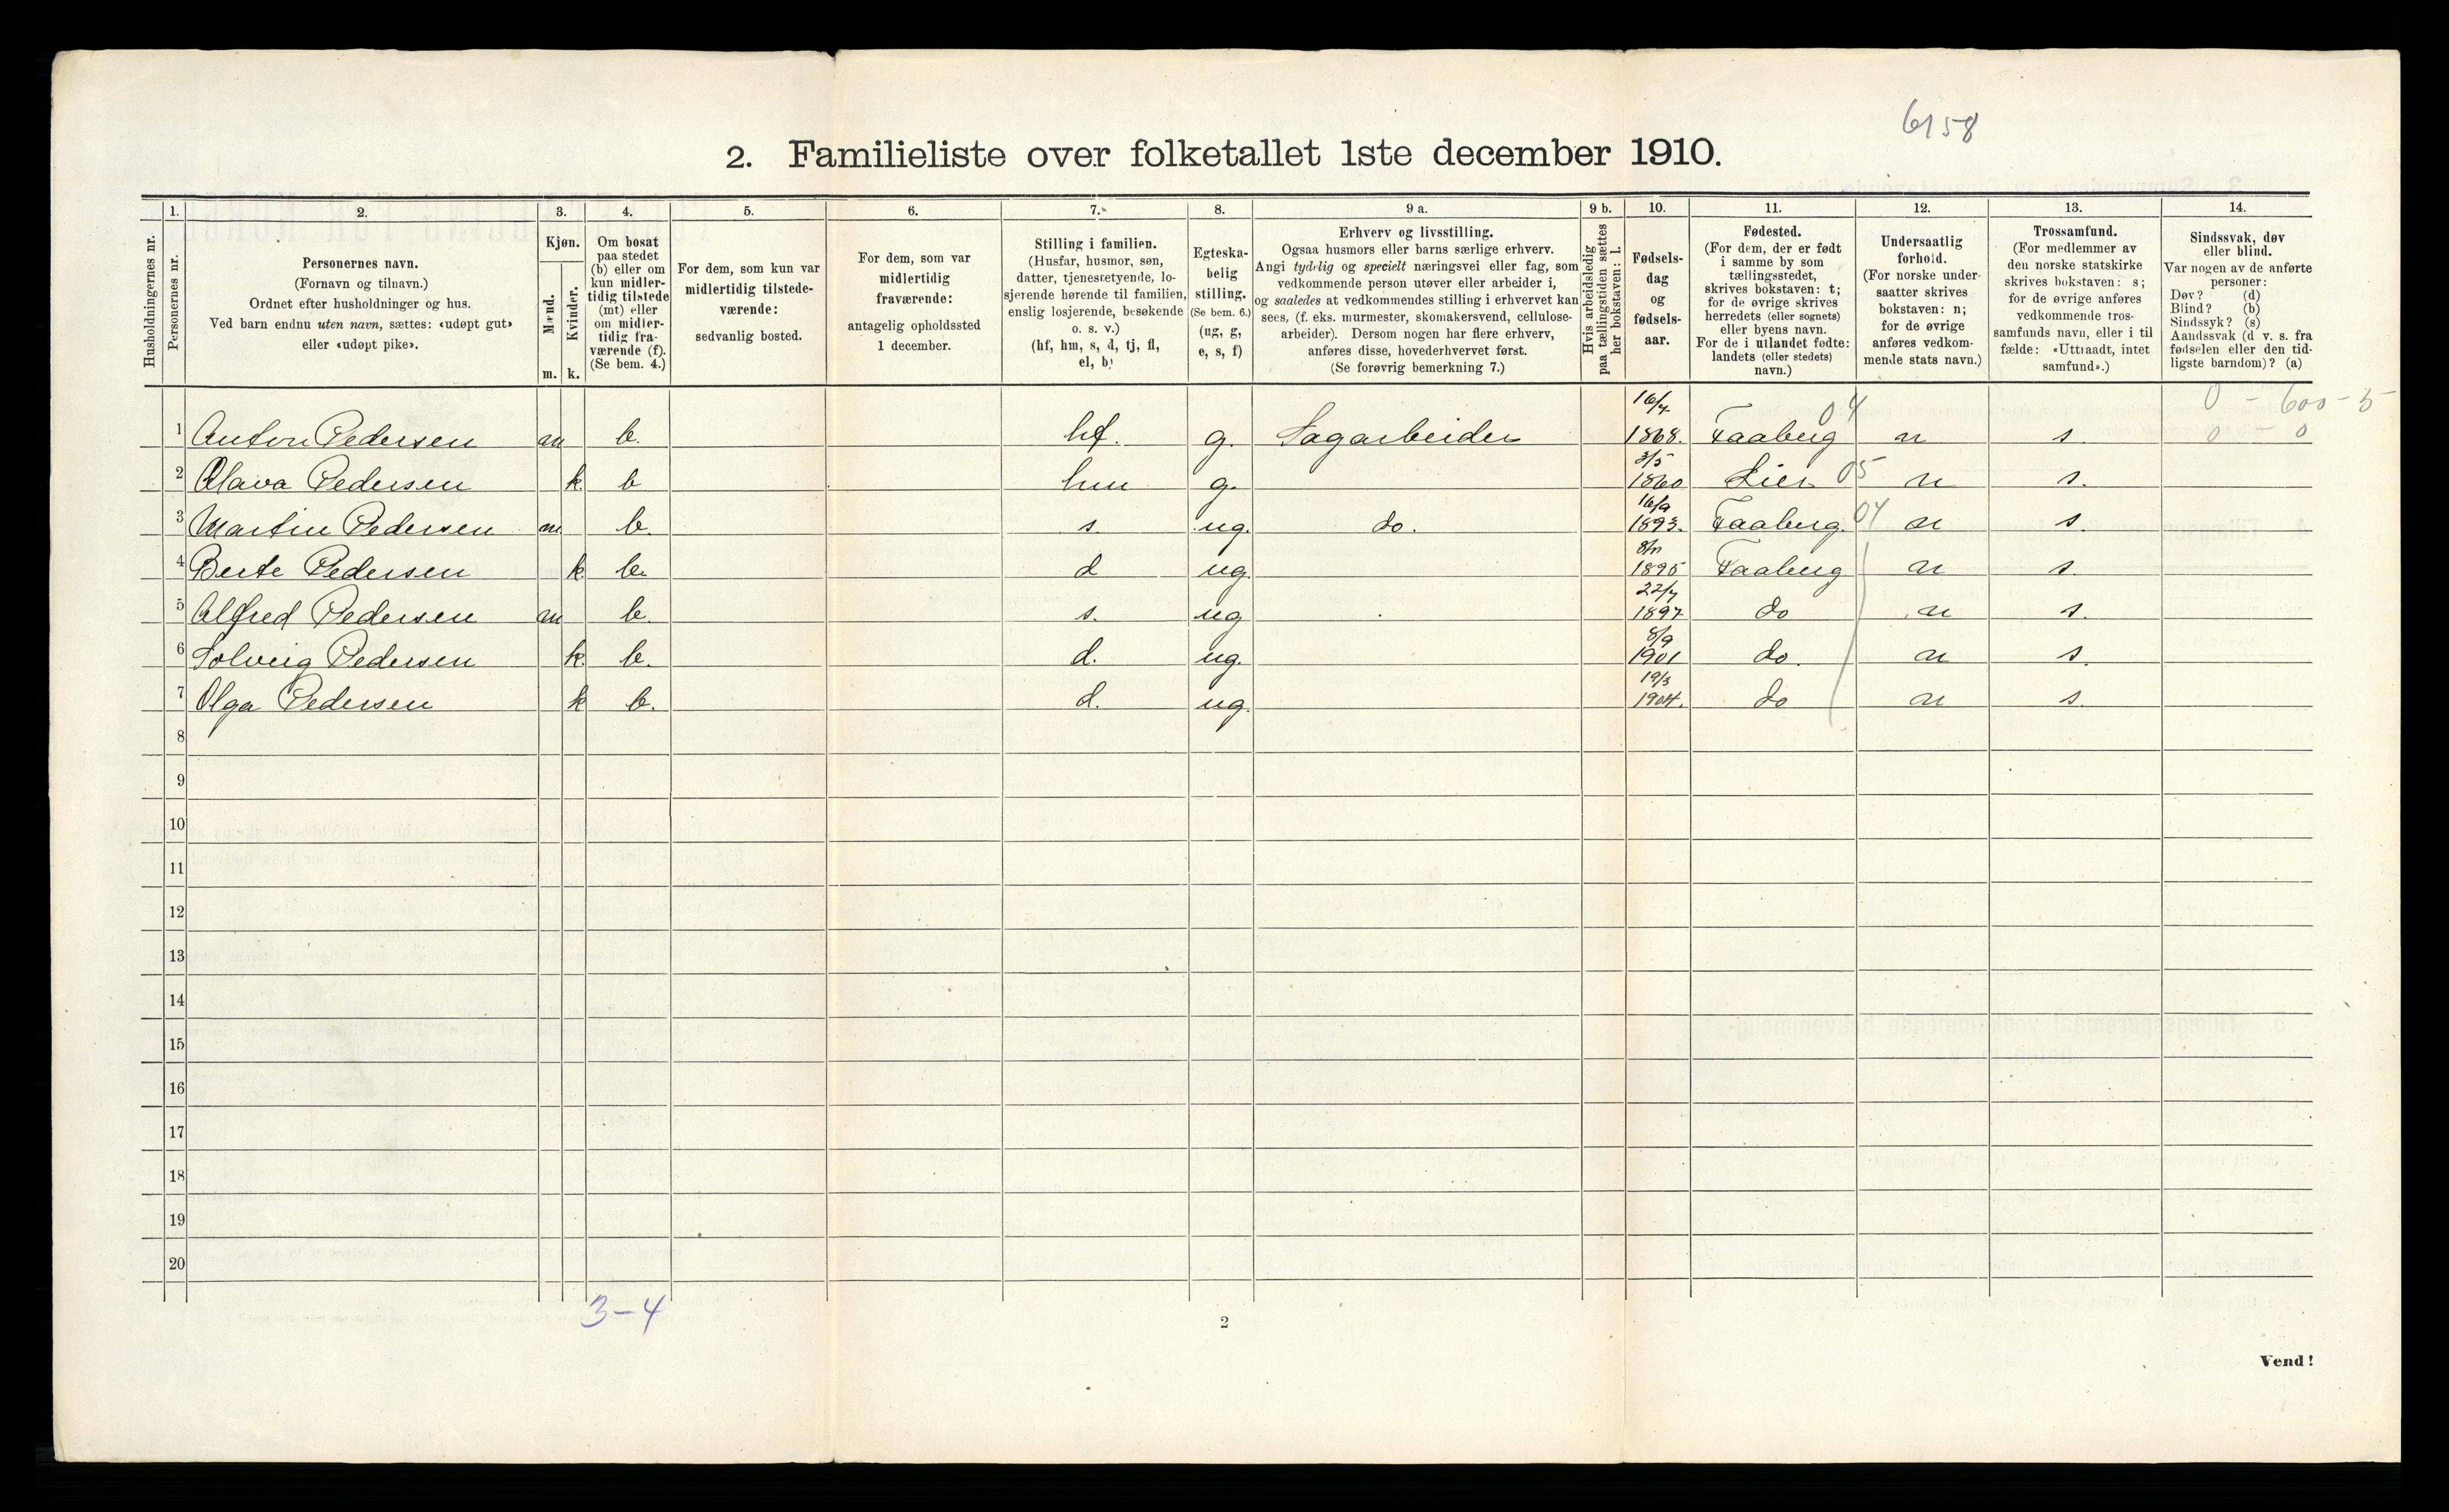 6158
2. Familieliste over folketallet 1ste december 1910.
Husholdningernes nr.
1. Personernes nr.
2. Personernes navn.
(Fornavn og tilnavn.)
Ordnet efter husholdninger og hus.
Ved barn endnu uten navn, sættes: «udøpt gut»
eller «udøpt pike».
3. Kjøn.
Mænd. m.
Kvinder. k.
4. Om bosat
paa stedet
(b) eller om
kun midler-
tidig tilstede
(mt) eller
om midler-
tidig fra-
værende (f).
(Se bem. 4.)
5. For dem, som kun var
midlertidig tilstede-
værende:
sedvanlig bosted.
6. For dem, som var
midlertidig
fraværende:
antagelig opholdssted
1 december.
7. Stilling i familien.
(Husfar, husmor, søn,
datter, tjenestetyende, lo-
sjerende hørende til familien,
enslig losjerende, besøkende
o. s. v.)
(hf, hm, s, d, tj, fl,
el, b)
8. Egteska-
belig
stilling.
(Se bem. 6.)
(ug, g,
e, s, f)
9 a. Erhverv og livsstilling.
Ogsaa husmors eller barns særlige erhverv.
Angi tydelig og specielt næringsvei eller fag, som
vedkommende person utøver eller arbeider i,
og saaledes at vedkommendes stilling i erhvervet kan
sees, (f. eks. murmester, skomakersvend, cellulose-
arbeider). Dersom nogen har flere erhverv,
anføres disse, hovederhvervet først.
(Se forøvrig bemerkning 7.)
9 b. Hvis arbeidsledig
paa tællingstiden sættes
her bokstaven: l.
10. Fødsels-
dag
og
fødsels-
aar.
11. Fødested.
(For dem, der er født
i samme by som
tællingsstedet,
skrives bokstaven: t;
for de øvrige skrives
herredets (eller sognets)
eller byens navn.
For de i utlandet fødte:
landets (eller stedets)
navn.)
12. Undersaatlig
forhold.
(For norske under-
saatter skrives
bokstaven: n;
for de øvrige
anføres vedkom-
mende stats navn.)
13. Trossamfund.
(For medlemmer av
den norske statskirke
skrives bokstaven: s;
for de øvrige anføres
vedkommende tros-
samfunds navn, eller i til
fælde: «Uttraadt, intet
samfund».)
14. Sindssvak, døv
eller blind.
Var nogen av de anførte
personer:
Døv? (d)
Blind? (b)
Sindssyk? (s)
Aandssvak (d v. s. fra
fødselen eller den tid-
ligste barndom)? (a)
0 - 600 - 5
1 Anton Pedersen m b. hf. g. Sagarbeider 16/4 1868. Faaberg 04 n s. 0 - 0
2 Olava Pedersen k b hm g. 3/5 1860 Lier 05 n s.
3 Martin Pedersen m. b. s. ug. do. 16/9 1893. Faaberg. 04 n s.
4 Berte Pedersen k b. d ug. 8/11 1895 Faaberg n s.
5 Alfred Pedersen m b. s. ug 22/7 1897 do n s.
6 Solveig Pedersen k. b. d. ug. 8/9 1901 do. n s.
7 Olga Pedersen k b. d. ug. 19/3 1904. do n s.
8
9
10
11
12
13
14
15
16
17
18
19
20
3-4
2
Vend!